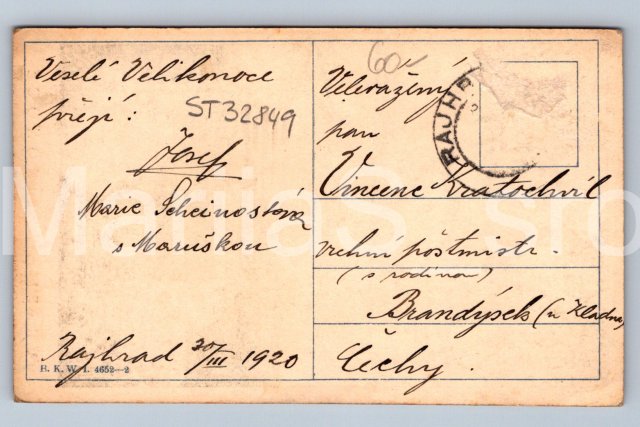 Veselé Velikonoce
přejí:
ST32849
Josef
Marie Scheinostová
s Maruškou
Rajhrad 30/III 1920
B. K. W. I. 4652—2
60
RAJHR
Velevážený
pan
Vincenc Kratochvíl
vrchní poštmistr.
(s rodinou)
Brandýsek (u Kladna)
Čechy.